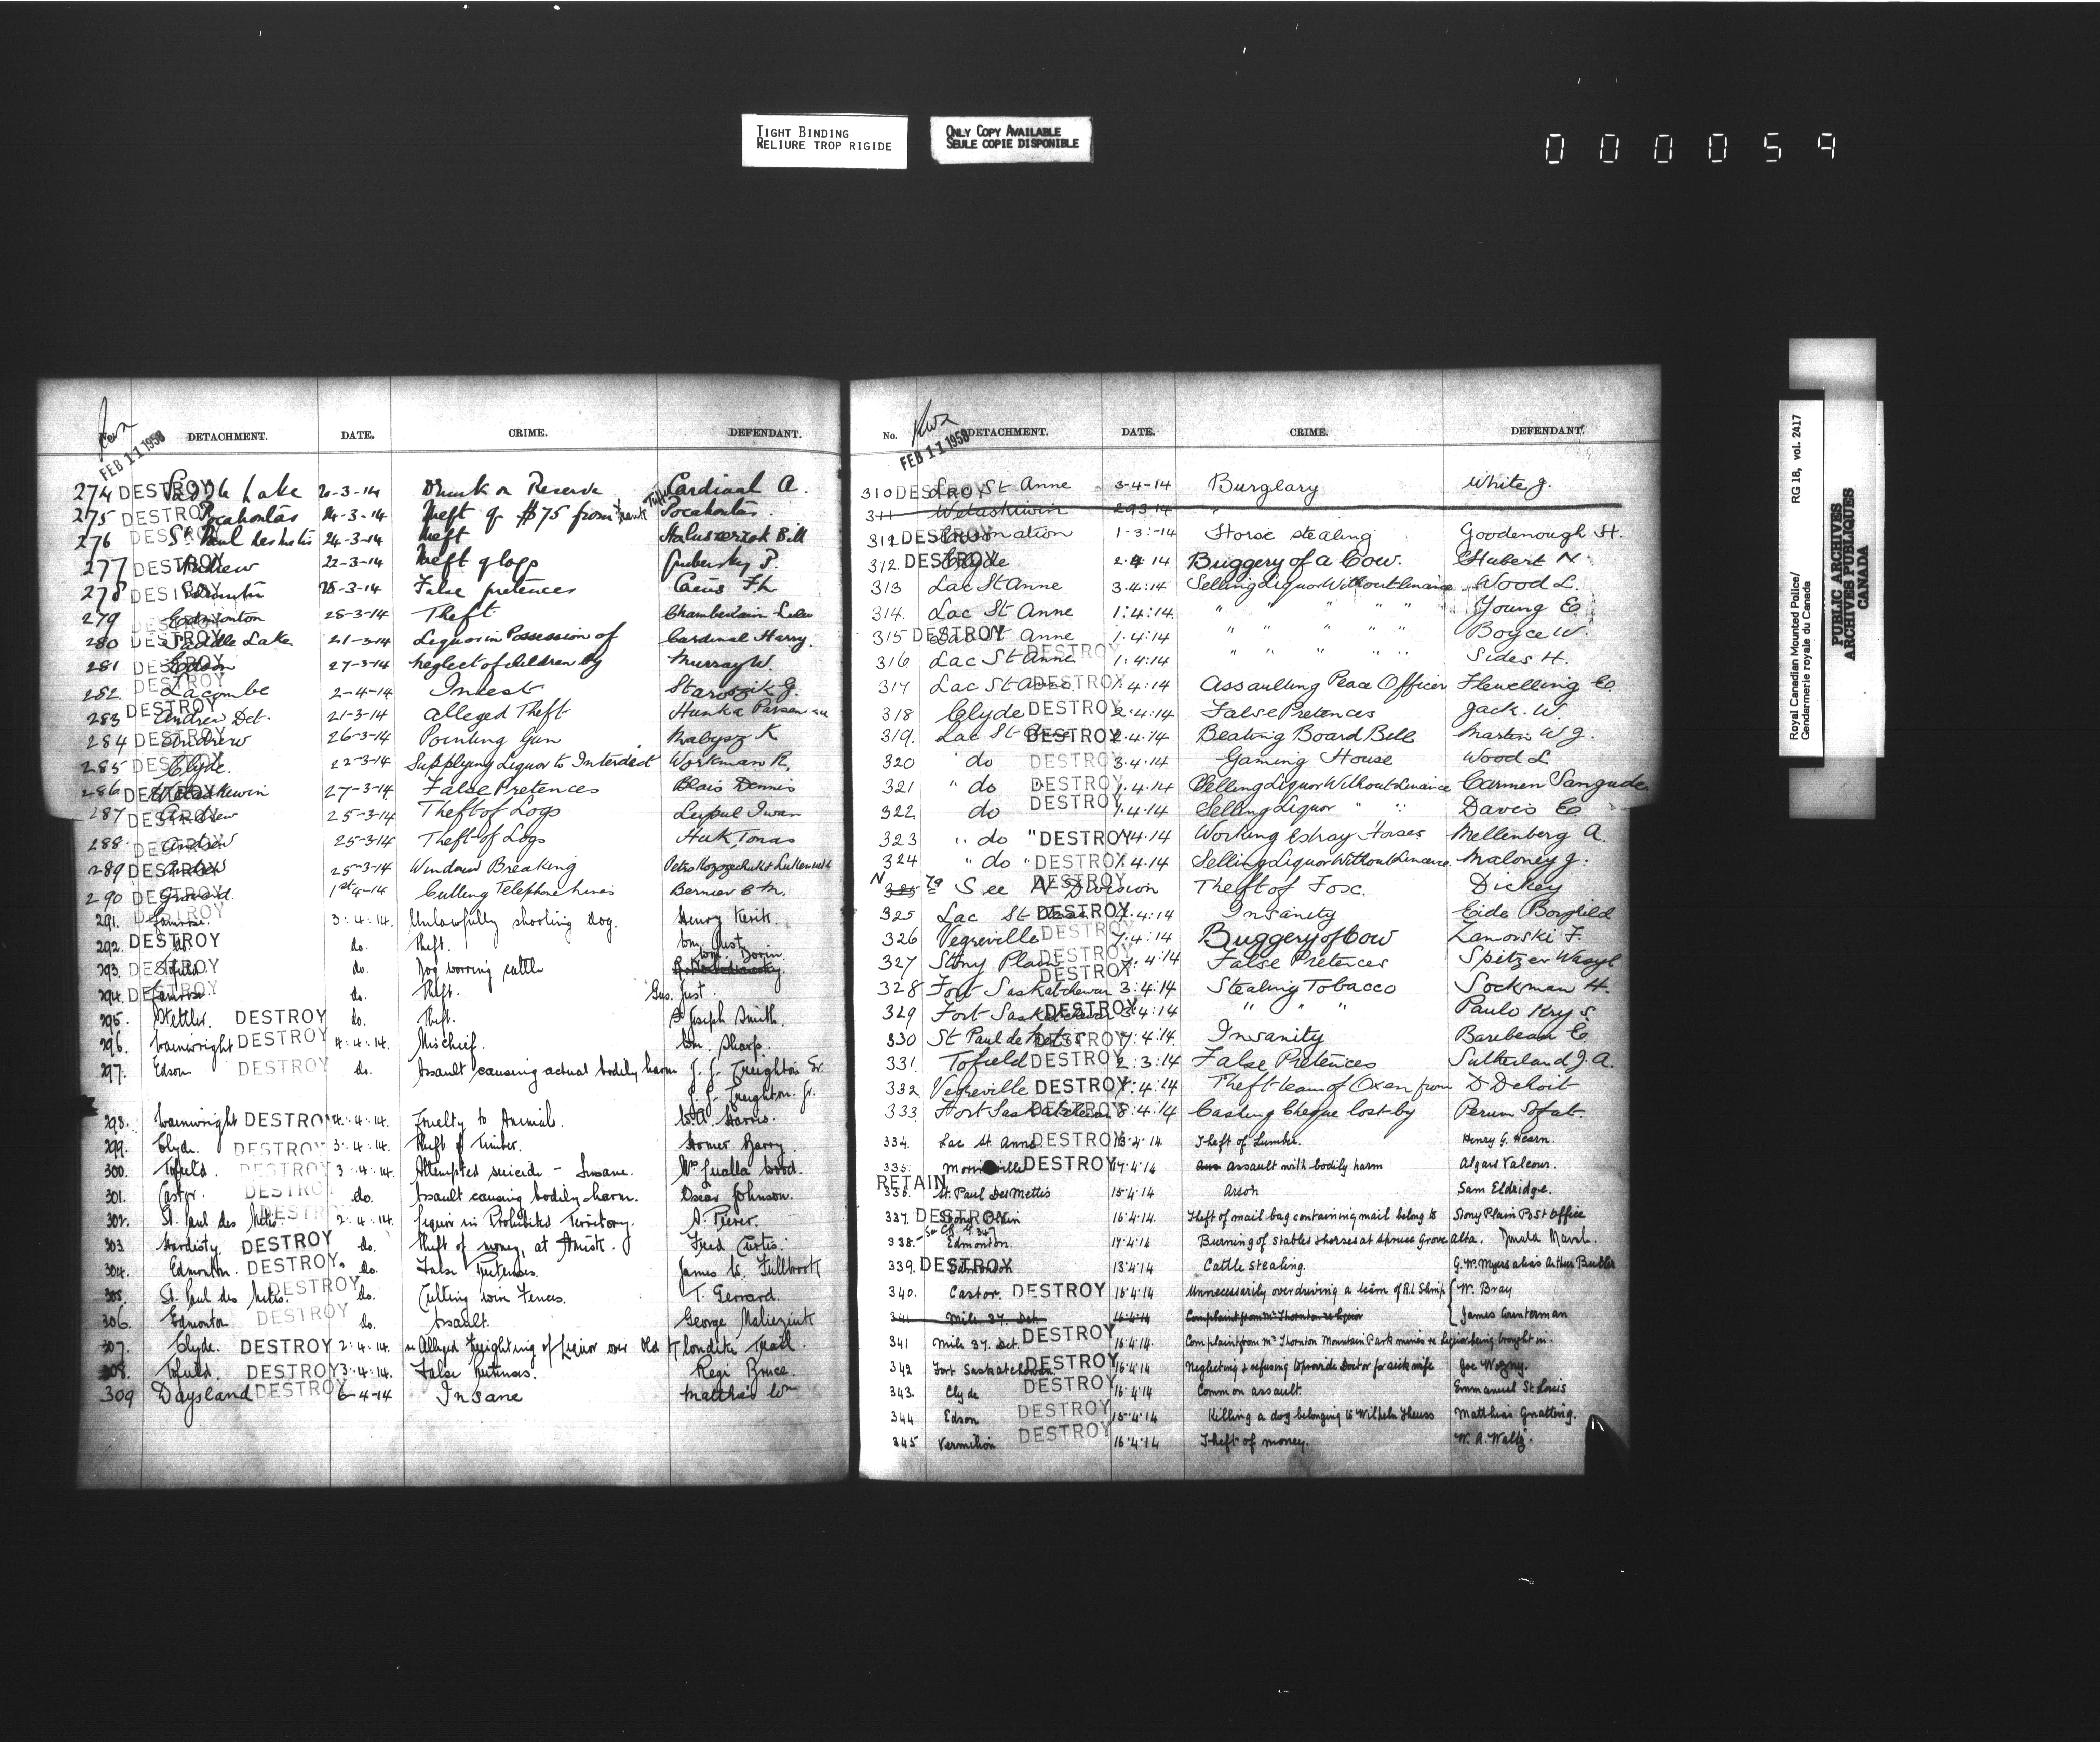 TIGHT BINDING
RELIURE TROP RIGIDE
ONLY COPY AVAILABLE
SEULE COPIE DISPONIBLE
000059
FEB 11 1958
DETACHMENT. DATE. CRIME. DEFENDANT.
274 DESTROY Saddle Lake 20-3-14 Drunk on Reserve Cardinal A.
275 DESTROY Pocahontas 24-3-14 Theft of $75 from Pocahontas.
276 DESTROY St Paul des Metis 24-3-14 Theft Bill
277 DESTROY Andrew 22-3-14 Theft of logs P.
278 DESTROY 28-3-14 False pretences
279 DESTROY Edmonton 28-3-14 Theft Chamberlain
280 DESTROY Saddle Lake 21-3-14 Liquor in Possession of Cardinal Harry.
281 DESTROY Edson 27-3-14 neglect of children by Murray W.
282. DESTROY Lacombe 2-4-14 Incest Staroszik G.
283 DESTROY Andrew Det. 21-3-14 Alleged Theft Hunka
284 DESTROY Andrew 26-3-14 Pointing Gun K
285 DESTROY Clyde. 22-3-14 Supplying Liquor to Interdict Workman R.
286 DESTROY Wetaskiwin 27-3-14 False Pretences Blais Dennis
287 DESTROY Andrew 25-3-14 Theft of Logs Iwan
288. DESTROY Andrew 25-3-14 Theft of Logs Huk Tomas
289 DESTROY Andrew 25-3-14 Window Breaking
290 DESTROY 1st-4-14 Cutting Telephone lines Bernier
291. DESTROY Camrose. 3.4.14. Unlawfully shooting dog. Henry
292. DESTROY do. do. Theft. Wm. Just.
293. DESTROY Tofield. do. Dog worring cattle Wm. Dorin.
294. DESTROY Camrose. do. Theft. Gus. Just.
295. Stettler. DESTROY do. Theft. Joseph Smith.
296. Wainwright DESTROY 4.4.14. Mischief. Wm. Sharp.
297. Edson DESTROY do. Assault causing actual bodily harm J. J. Creighton Sr.
J. J. Creighton. Jr.
298. Wainwright DESTROY 4.4.14. Cruelty to Animals. Harris.
299. Clyde. DESTROY 3.4.14. Theft of Timber. Homer Barry.
300. Tofield. DESTROY 3.4.14. Attempted suicide - Insane. Mrs Wood.
301. Castor. DESTROY do. Assault causing bodily harm. Oscar Johnson.
302. St. Paul des Metis. DESTROY 2.4.14. Liquor in Prohibited Territory.
303 Hardisty. DESTROY do. Theft of money, at Amisk. Fred Curtis.
304. Edmonton. DESTROY do. False Pretenses. James W. Fullbrook
305. St. Paul des Metis. DESTROY do. Cutting wire Fences. T. Gerrard.
306. Edmonton DESTROY do. Assault. George
307. Clyde. DESTROY 2.4.14. re Alleged Freighting of Liquor over Old Klondike Trail.
308. Tofield. DESTROY 3.4.14. False Pretenses. Regi Bruce.
309 Daysland DESTROY 6-4-14 Insane Matthew Wm
FEB 11 1958
No. DETACHMENT. DATE. CRIME. DEFENDANT.
310 DESTROY Lac St Anne 3-4-14 Burglary White J.
311 Wetaskiwin 29 3 14
312 DESTROY Coronation 1-3-14 Horse stealing Goodenough H.
312. DESTROY Clyde 2.4.14 Buggery of a Cow. Hubert N.
313 Lac St Anne 3.4.14 Selling Liquor Without Licence Wood L.
314. Lac St Anne 1.4.14. " " " " " Young E.
315 DESTROY Lac St Anne 1.4.14 " " " " " Boyce W.
316 Lac St Anne DESTROY 1.4.14 " " " " " Sides H.
317 Lac St Anne. DESTROY 1.4.14 Assaulting Peace Officer Flewelling E.
318 Clyde DESTROY 2.4.14 False Pretences Jack. W.
319. Lac St Anne DESTROY 2.4.14 Beating Board Bill Martin W J.
320 " do DESTROY 3.4.14 Gaming House Wood L
321 " do DESTROY 1.4.14 Selling Liquor Without Licence Carmen Sangudo
322 do DESTROY 1.4.14 Selling Liquor " " Davis E
323 " do " DESTROY 1.4.14 Working Estray Horses Mellenberg A.
324 " do " DESTROY 1.4.14 Selling Liquor Without Licence. Maloney J.
N 325 79 See N Division DESTROY Theft of Fox. Dickey
325 Lac St Anne DESTROY 7.4.14 Insanity Eide Borghild
326 Vegreville DESTROY 7.4.14 Buggery of Cow Zamorski F.
327 Stony Plain DESTROY 7.4.14 False Pretences Spitzer Wasyl
328 Fort Saskatchewan DESTROY 3.4.14 Stealing Tobacco Sockman H.
329 Fort Saskatchewan DESTROY 3.4.14 " " " Paulo Krys.
330 St Paul de Metis DESTROY 7.4.14. Insanity Baribeau E.
331. Tofield DESTROY 2.3.14 False Pretences Sutherland J. A.
332 Vegreville DESTROY 7.4.14 Theft team of Oxen from D Detroit
333 Fort Saskatchewan DESTROY 8.4.14 Cashing Cheque lost by Perun Sofat
334. Lac St. Anne DESTROY 13.4.14 Theft of Lumber. Henry G. Hearn.
335. Morinville DESTROY 14.4.14 assault with bodily harm Algard Valcour.
RETAIN
336. St. Paul Des Mettis 15.4.14 Arson Sam Eldridge.
337. DESTROY Stony Plain 16.4.14. Theft of mail bag containing mail belong to Stony Plain Post Office
338. Edmonton. 17.4.14 Burning of Stables & horses at Spruce Grove Alta. Donald Marsh.
339. DESTROY Edmonton 13.4.14 Cattle stealing. G. W. Myers alias Arthur Butler
340. Castor. DESTROY 16.4.14 Unnecessarily overdriving a team of R.L Shimp W. Bray
341 Mile 37. Det. 16.4.14 Complaint from Mr Thornton re liquor James Counterman
341 Mile 37. Det. DESTROY 16.4.14. Complaint from Mr Thornton Mountain Park mines re liquor being brought in.
342 Fort Saskatchewan. DESTROY 16.4.14 Neglecting & refusing to provide Doctor for sick wife Joe Wozny.
343. Clyde DESTROY 16.4.14 Common assault. Emmanuel St Louis
344 Edson DESTROY 15.4.14 Killing a dog belonging to Wilhelm Theuss Matthias Gnatting.
345 Vermilion DESTROY 16.4.14 Theft of money. W. A. Waltz.
Royal Canadian Mounted Police/ RG 18, vol. 2417
Gendarmerie royale du Canada
PUBLIC ARCHIVES
ARCHIVES PUBLIQUES
CANADA